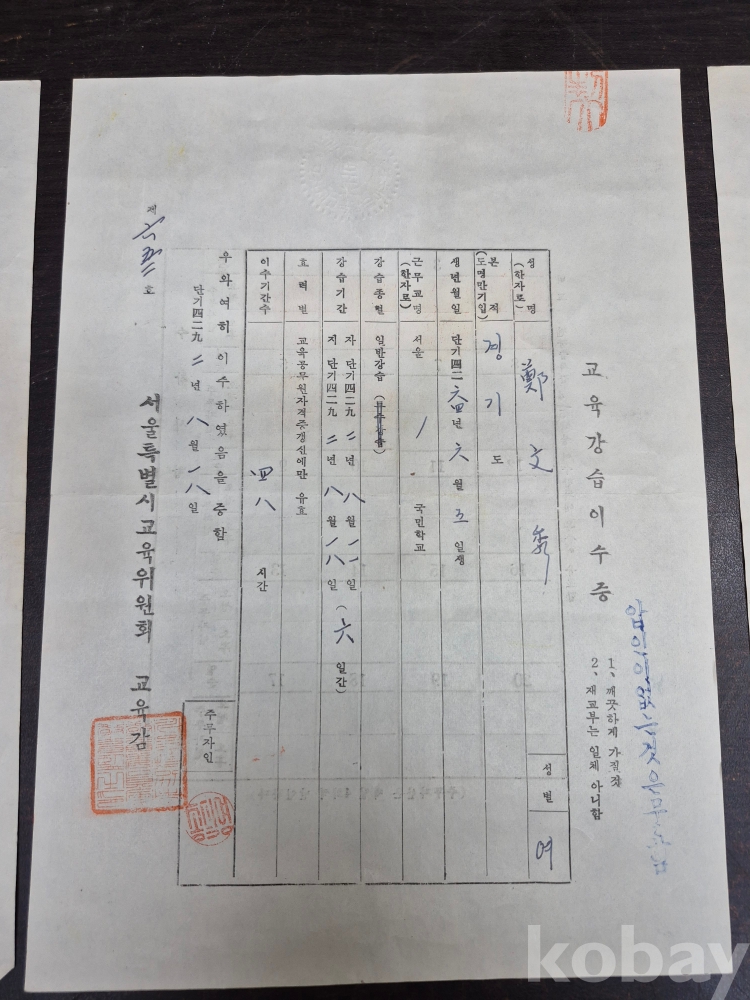 압인이없는것은무효임
1、깨끗하게 가질것
2、재교부는 일체 아니함
교육강습이수증
성명 (한자로) 鄭文 성별 여
본적 (도명만기입) 경기도
생년월일 단기四二六四년 六월 五일생
근무교명 (한자로) 서울 국민학교
강습종별 일반강습 (특수강습)
강습기간 자 단기四二九二년 八월 一一일
지 단기四二九二년 八월 一八일 (六일간)
효력별 교육공무원자격증갱신에만 유효
이수기간수 四八 시간
주무자인
우와여히 이수하였음을 증함
단기四二九二년 八월 一八일
서울특별시교육위원회 교육감
제 호
kobay